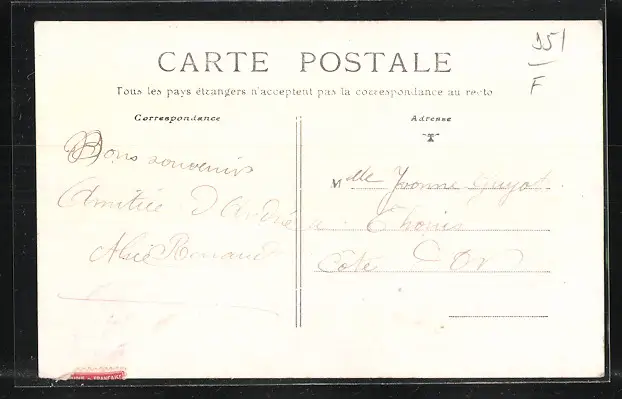 CARTE POSTALE
Tous les pays étrangers n'acceptent pas la correspondance au recto
Correspondance
Adresse
Bons souvenirs
Amitiée d'Andrée
Renaud
Mlle Yvonne Guyot
Côte D'Or
FRANÇAISE
F